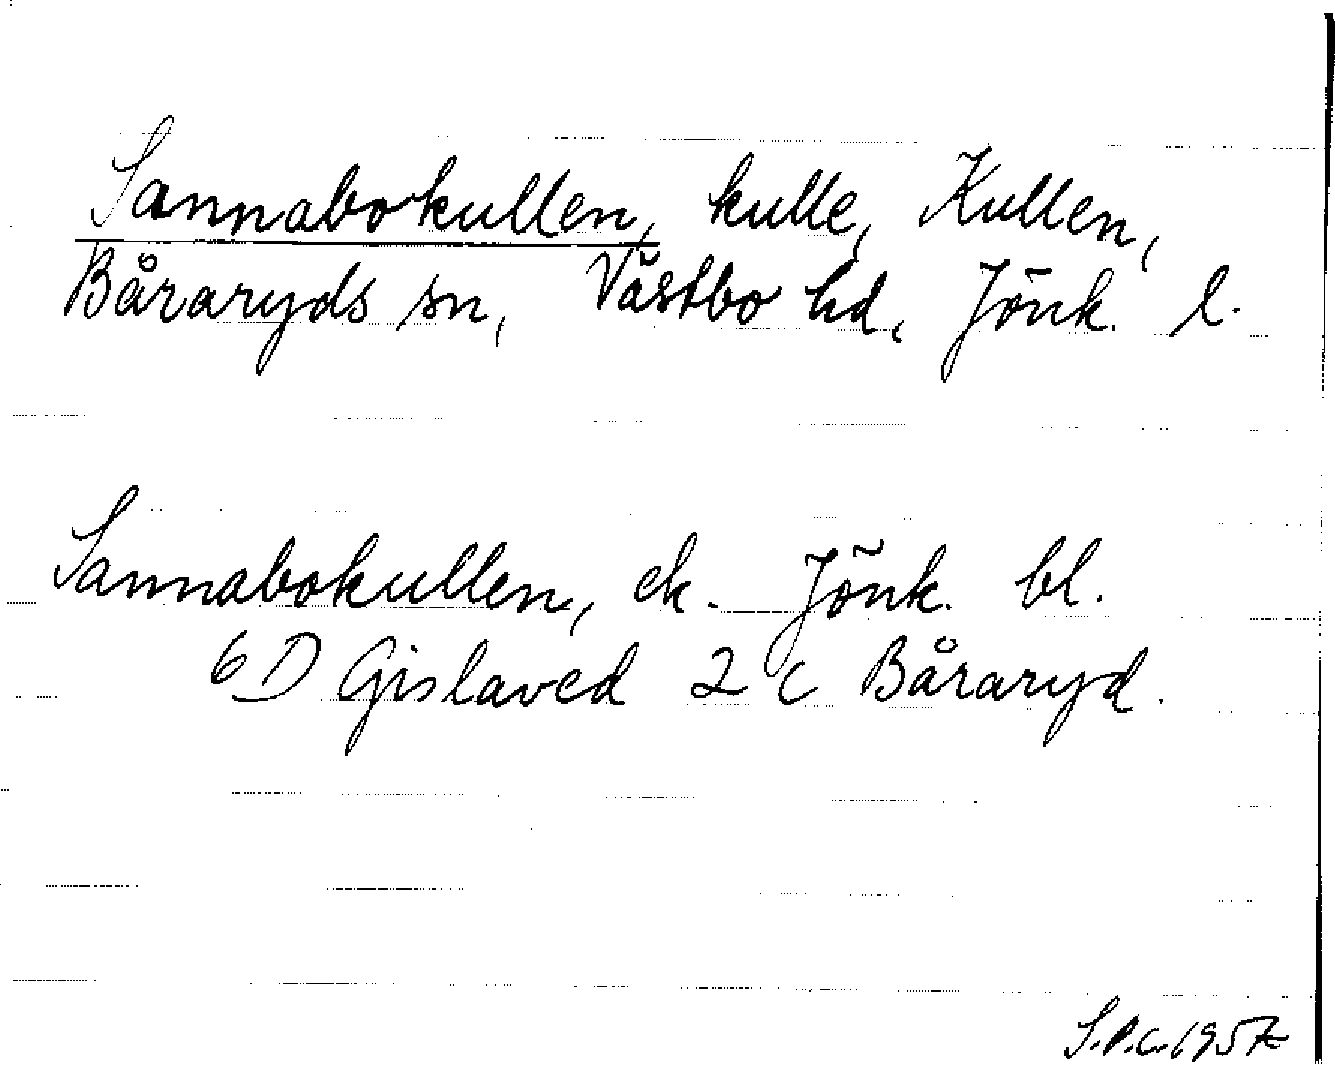 Sannabokullen, kulle, Kullen,
Båraryds sn, Västbo hd, Jönk. l.
Sannabokullen, ek. Jönk. bl.
6 D Gislaved 2 c Båraryd.
S.P.C. 1957